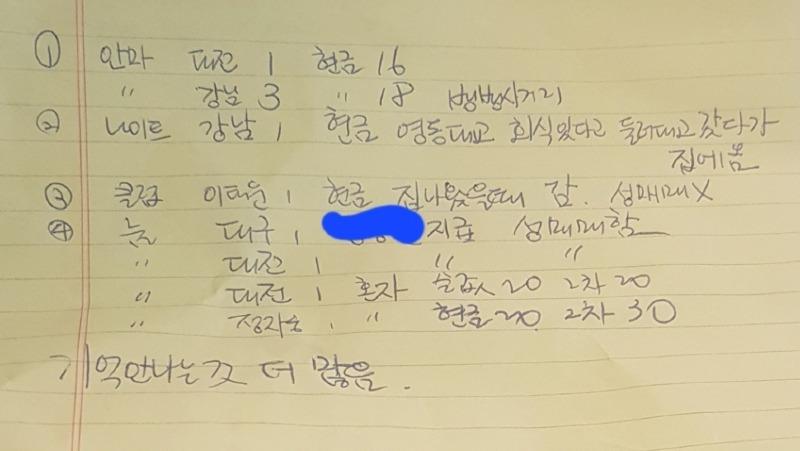 ① 안마 대전 1 현금 16
〃 강남 3 〃 18 뱅뱅사거리
② 나이트 강남 1 현금 영동대교 회식있다고 둘러대고 갔다가
집에옴
③ 클럽 이태원 1 현금 집나왔을때 감. 성매매X
④ 룸 대구 1 지급 성매매함
〃 대전 1 〃 〃
〃 대전 1 혼자 술값 20 2차 20
〃 정자동 1 〃 현금 20 2차 30
기억안나는것 더 많음.